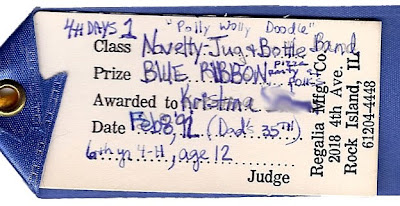 4H DAYS 1 "Polly Wolly Doodle"
Class Novelty-Jug & Bottle Band
Prize BLUE RIBBON & pizza party
Awarded to Kristina
Date Feb 8, 92 (Dad's 35TH)
6th yr 4-H, age 12
Judge
Regalia Mfg. Co.
2018 4th Ave.
Rock Island, IL
61204-4448